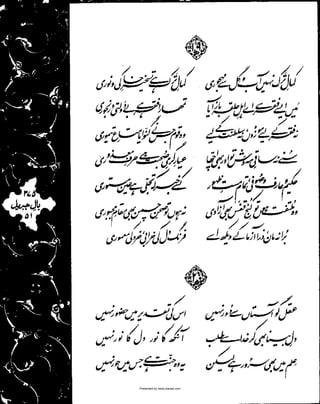 کمالِ ترک نہیں آب و گل سے مہجوری
کمالِ ترک ہے تسخیرِ خاکی و نوری
میں ایسے فقر سے اے اہلِ حلقہ باز آیا
تمھارا فقر ہے بے دولتی و رنجوری
نہ فقر کے لیے موزوں، نہ سلطنت کے لیے
وہ قوم جس نے گنوایا متاعِ تیموری
سنے نہ ساقیِ مہ وش تو اور بھی اچھا
عیارِ گرمیِ صحبت ہے حرفِ معذوری
حکیم و عارف و صوفی، تمام مستِ ظہور
کسے خبر کہ تجلی ہے عینِ مستوری
وہ ملتفت ہوں تو کنجِ قفس بھی آزادی
نہ ہوں تو صحنِ چمن بھی مقامِ مجبوری
برا نہ مان، ذرا آزما کے دیکھ اسے
فرنگ دل کی خرابی، خرد کی معموری
۳۷۵
بالِ جبریل
۵۱
عقل گو آستاں سے دور نہیں
اس کی تقدیر میں حضور نہیں
دلِ بینا بھی کر خدا سے طلب
آنکھ کا نور دل کا نور نہیں
علم میں بھی سرور ہے لیکن
یہ وہ جنت ہے جس میں حور نہیں